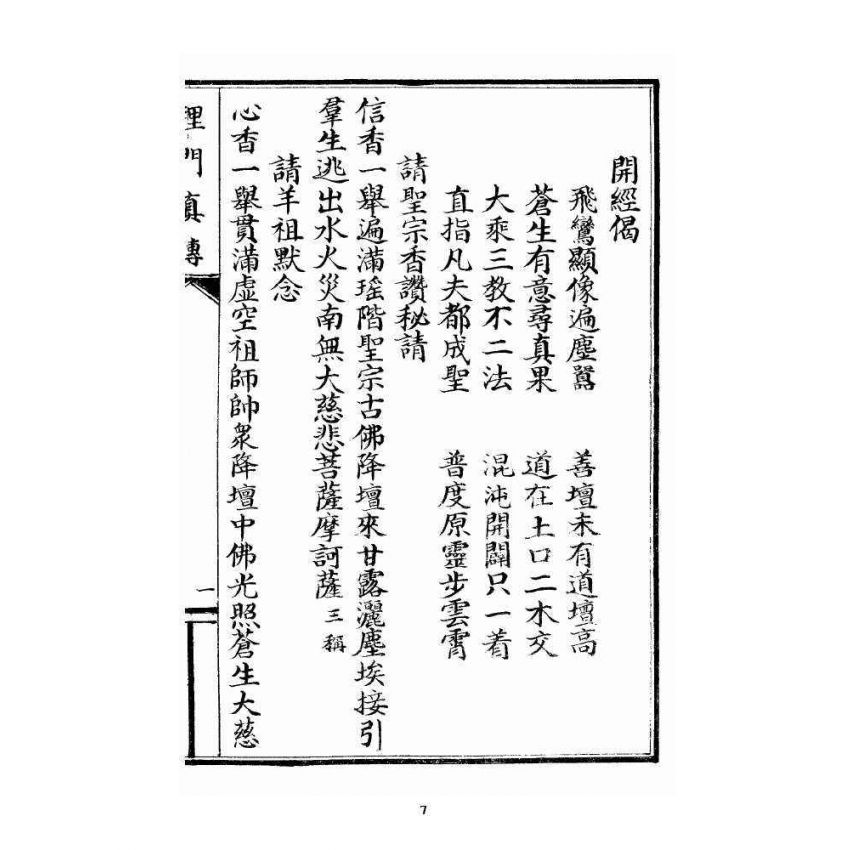 開經偈
飛鸞顯像遍塵囂 善壇未有道壇高
蒼生有意尋真果 道在土口二木交
大乘三教不二法 混沌開闢只一着
直指凡夫都成聖 普度原靈步雲霄
請聖宗香讚秘請
信香一舉遍滿瑤階聖宗古佛降壇來甘露灑塵埃接引
羣生逃出水火災南無大慈悲菩薩摩訶薩三稱
請羊祖默念
心香一舉貫滿虛空祖師帥衆降壇中佛光照蒼生大慈
理門真傳
一
7